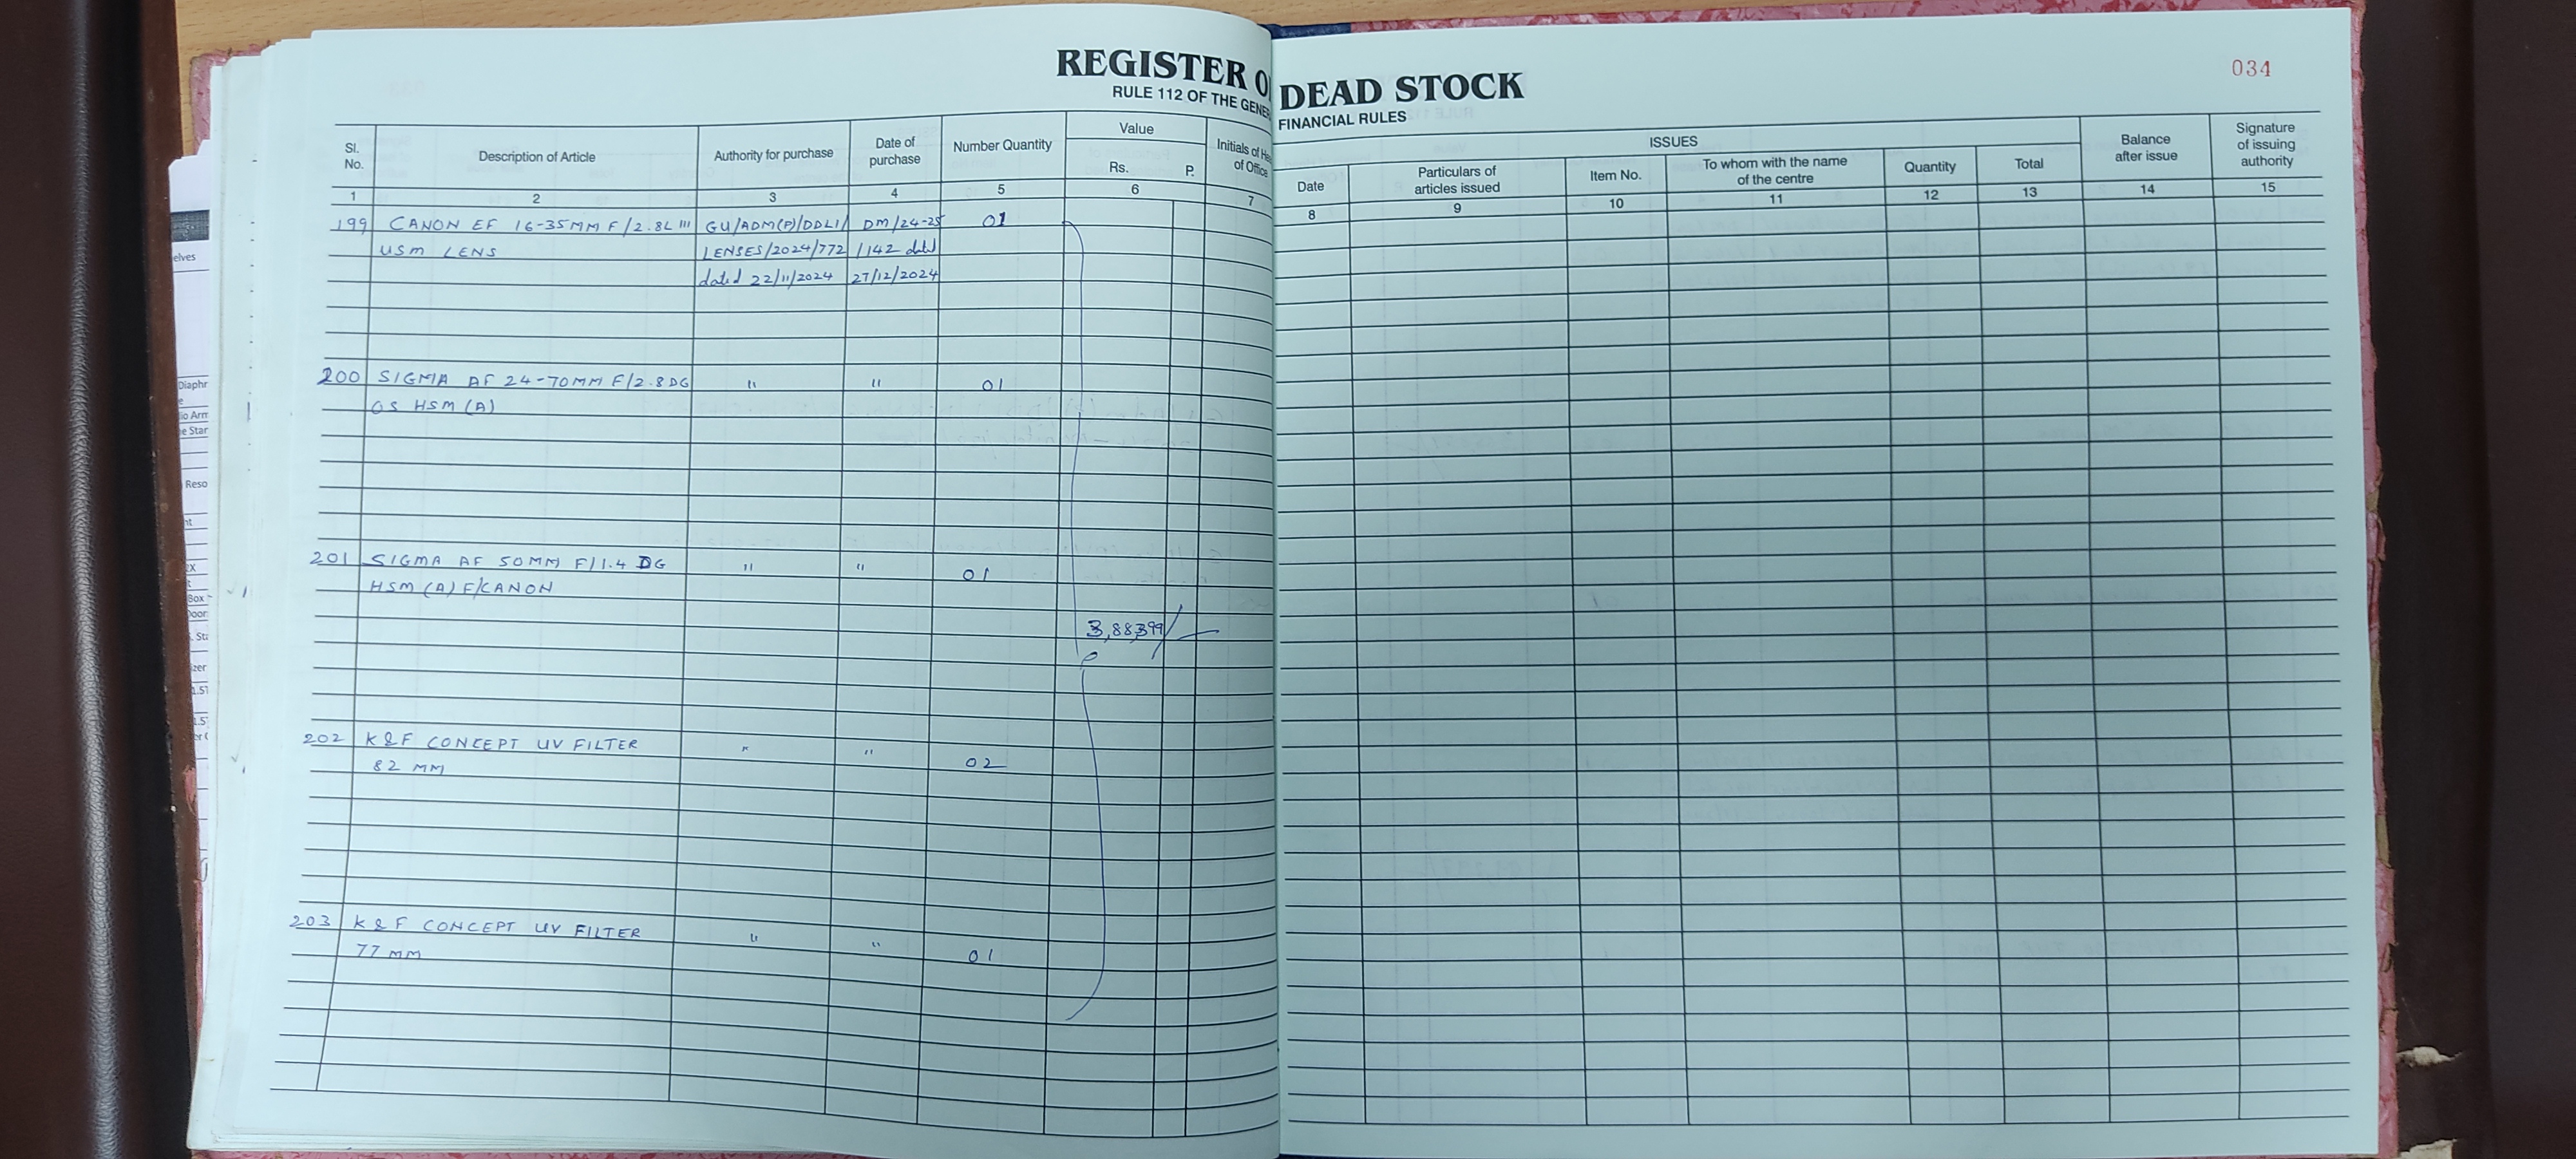 REGISTER O DEAD STOCK
RULE 112 OF THE GENE FINANCIAL RULES
034
Sl. No.
Description of Article
Authority for purchase
Date of purchase
Number Quantity
Value
Rs. P.
Initials of He of Office
1 2 3 4 5 6 7
199 CANON EF 16-35MM F/2.8L III GU/ADM(P)/DDLI/ DM/24-25 01
USM LENS LENSES/2024/772 1142 dtd
dated 22/11/2024 27/12/2024
200 SIGMA AF 24-70MM F/2.8 DG " " 01
OS HSM (A)
201 SIGMA AF 50MM F/1.4 DG " " 01
HSM (A) F/CANON
3,88,399/-
202 K&F CONCEPT UV FILTER " " 02
82 MM
203 K&F CONCEPT UV FILTER " " 01
77 MM
ISSUES
Date
Particulars of articles issued
Item No.
To whom with the name of the centre
Quantity
Total
Balance after issue
Signature of issuing authority
8 9 10 11 12 13 14 15
elves
Diaphr
e
io Arm
e Star
Reso
nt
Box
Door